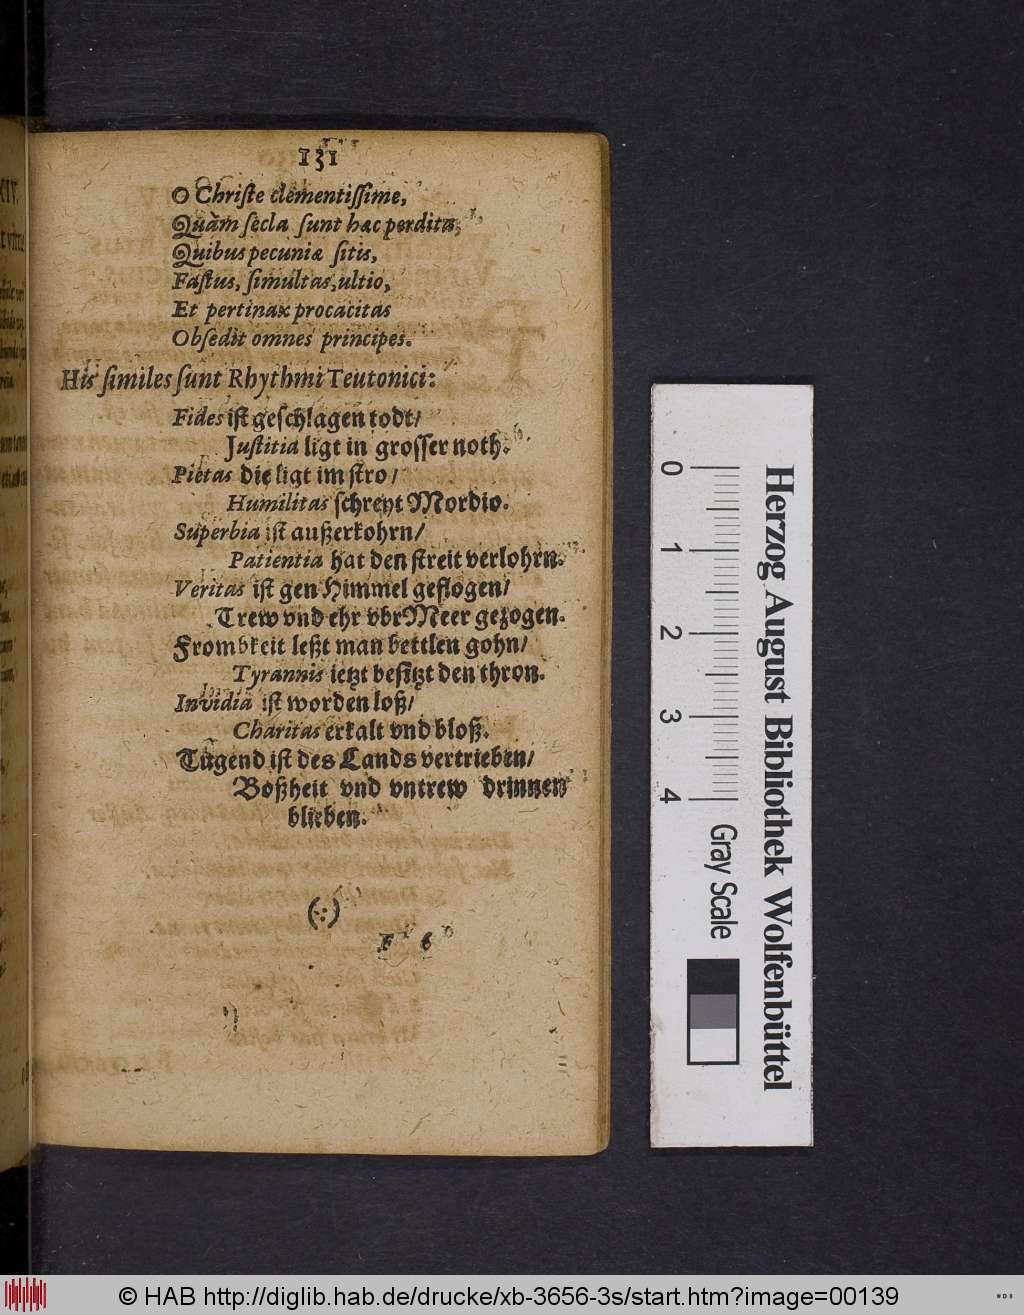 131
O Chriſte clementiſſime,
Quàm ſecla ſunt hæc perdita,
Quibus pecuniæ ſitis,
Faſtus, ſimultas, ultio,
Et pertinax procacitas
Obſedit omnes principes.
His ſimiles ſunt Rhythmi Teutonici:
Fides iſt geſchlagen todt/
Juſtitia ligt in groſſer noth.
Pietas die ligt im ſtro/
Humilitas ſchreyt Mordio.
Superbia iſt außerkohrn/
Patientia hat den ſtreit verlohrn.
Veritas iſt gen Himmel geflogen/
Trew vnd ehr vbr Meer gezogen.
Frombkeit leßt man bettlen gohn/
Tyrannis ietzt beſitzt den thron.
Invidia iſt worden loß/
Charitas erkalt vnd bloß.
Tugend iſt des Lands vertrieben/
Boßheit vnd vntrew drinnen
blieben.
F 6
Herzog August Bibliothek Wolfenbüttel
0 1 2 3 4 Gray Scale
© HAB http://diglib.hab.de/drucke/xb-3656-3s/start.htm?image=00139